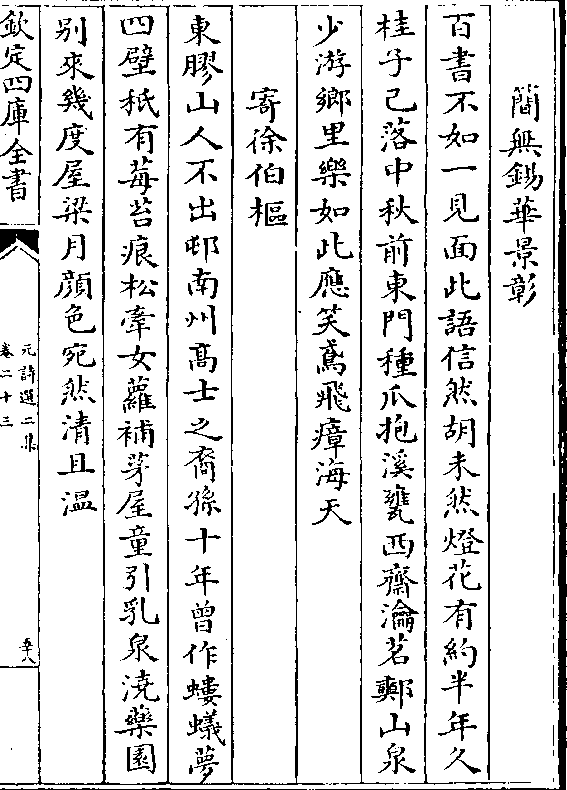 簡無錫華景彰
百書不如一見面此語信然胡未然燈花有約半年久
桂子已落中秋前東門種瓜抱溪甕西齋瀹茗鄭山泉
少游鄉里樂如此應笑鳶飛瘴海天
寄徐伯樞
東膠山人不出邨南州髙士之裔孫十年曾作螻蟻夢
四壁秖有莓苔痕松牽女蘿補茅屋童引乳泉澆藥園
别來幾度屋梁月顔色宛然清且溫
欽定四庫全書
元詩選二集
卷二十三